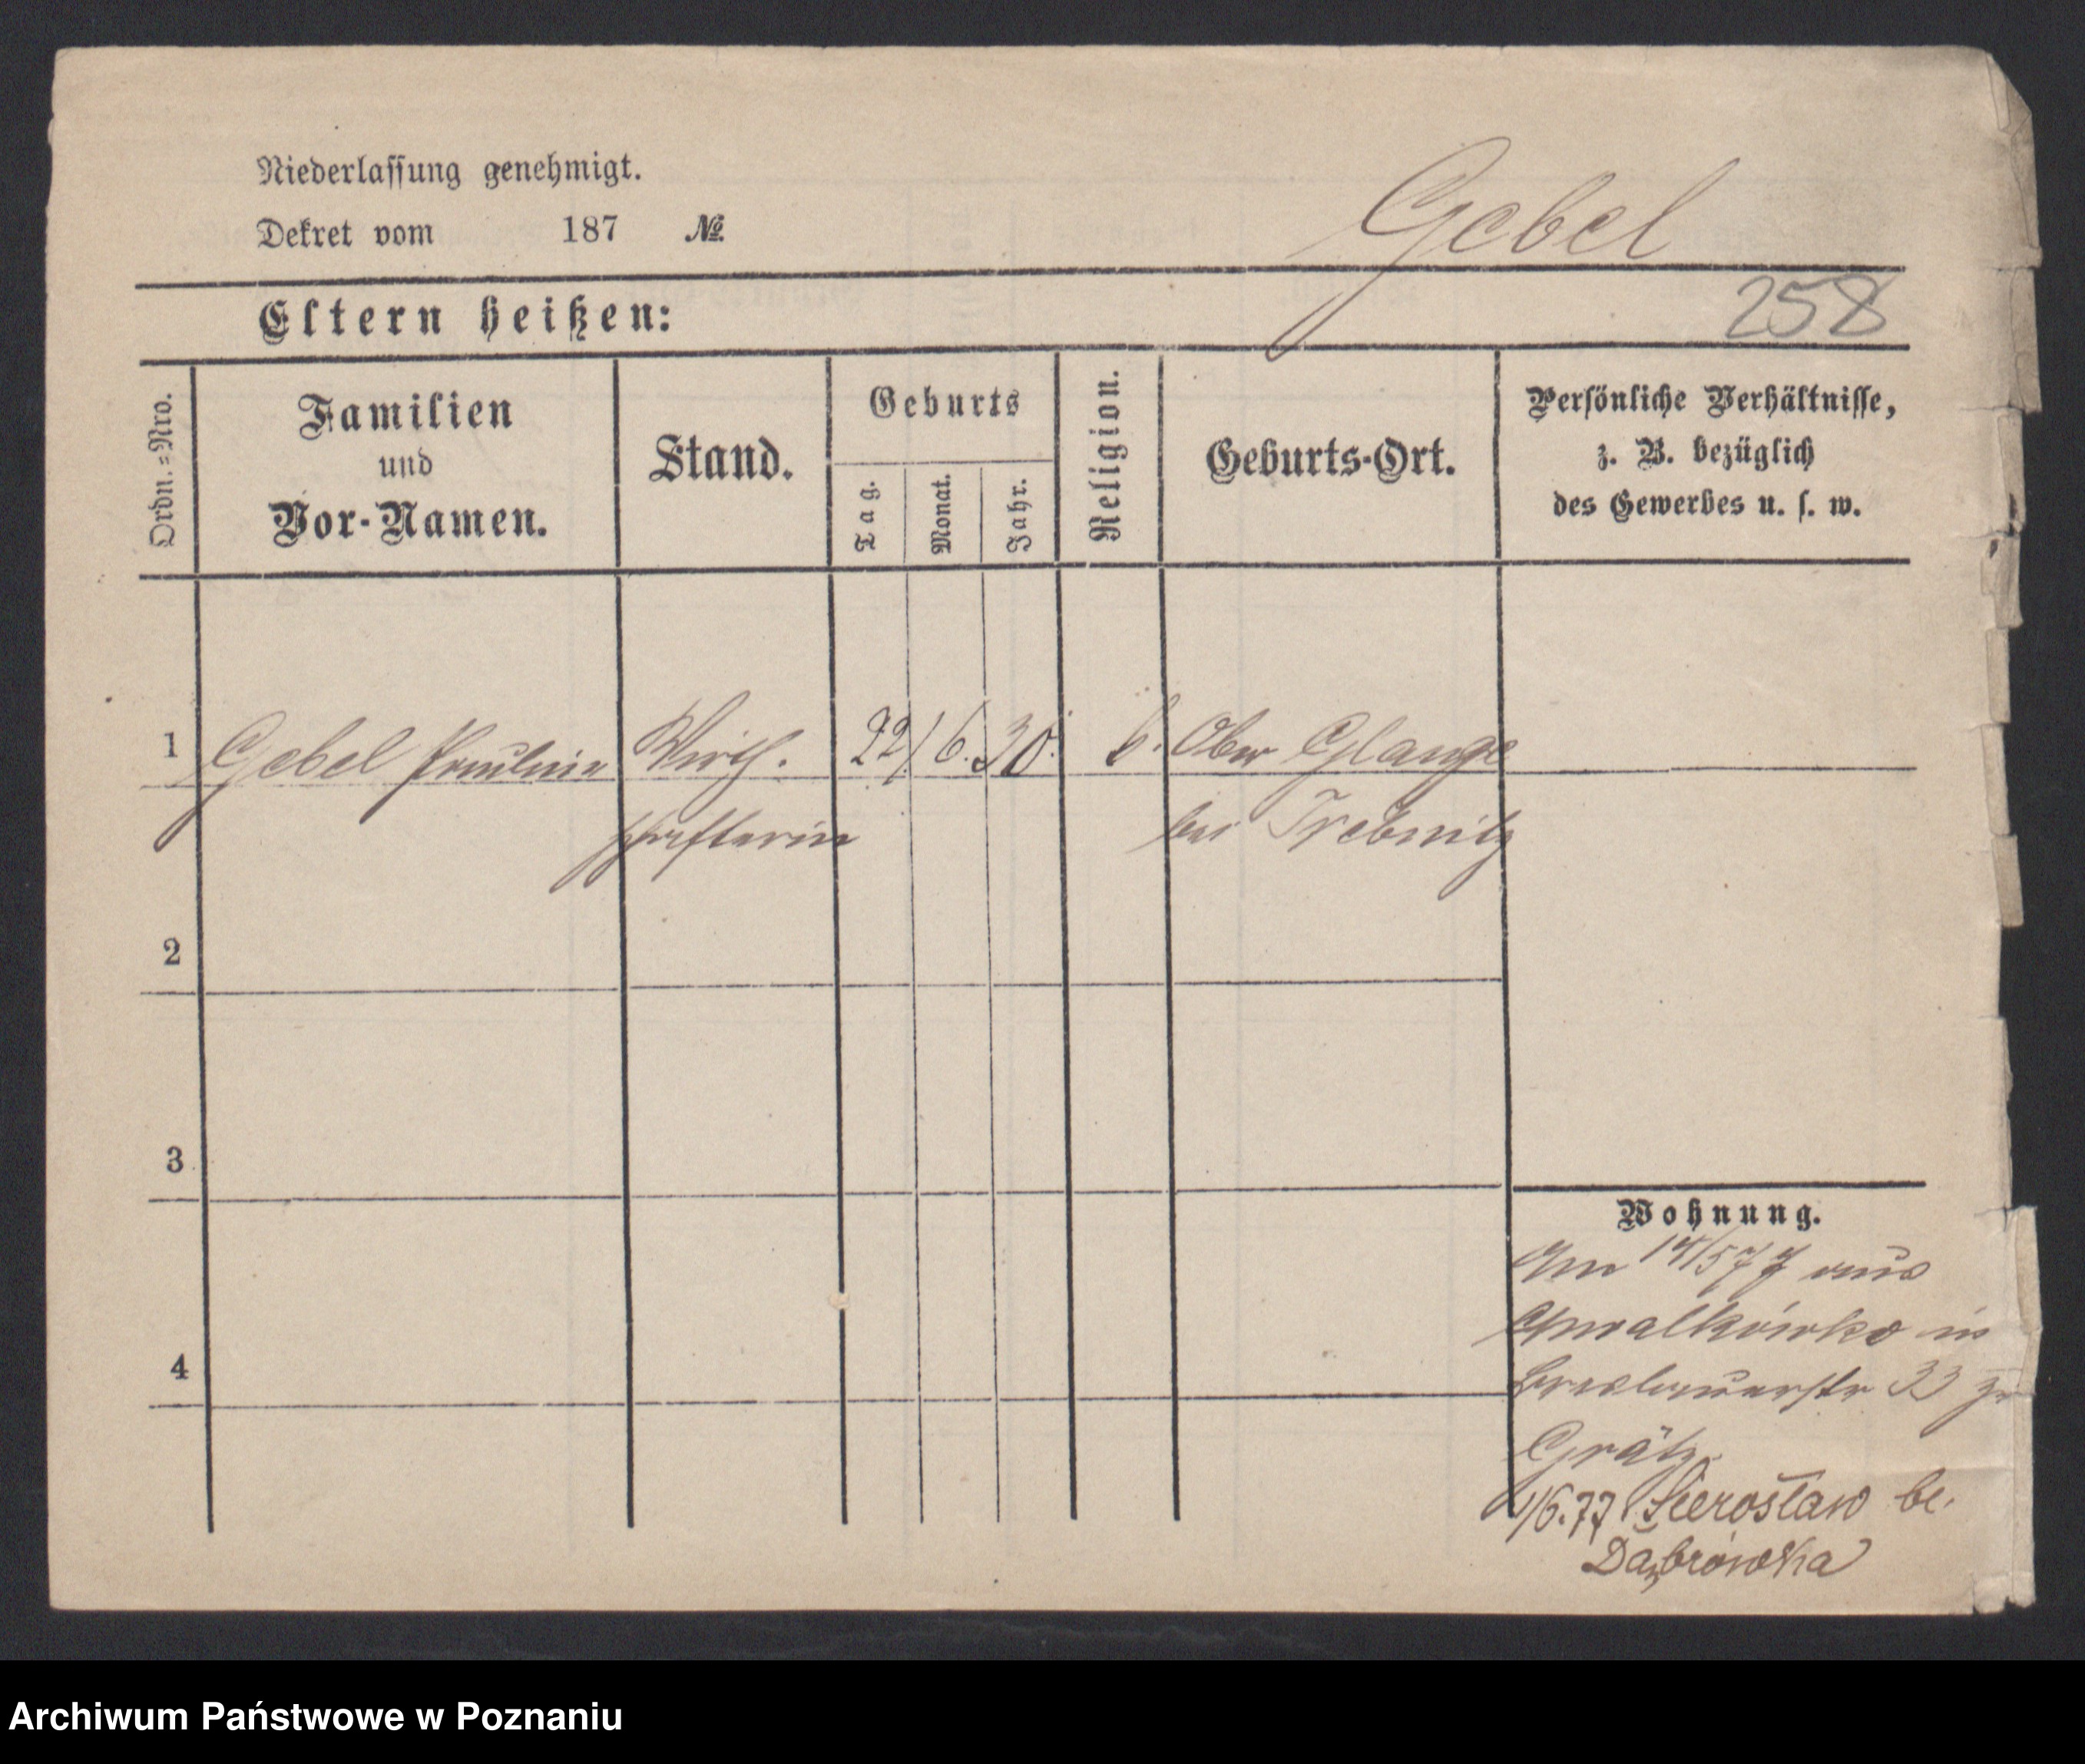 Niederlassung genehmigt.
Dekret vom 187 №
Gebel
Eltern heißen:
258
Ordn.=Nro.
Familien
und
Vor-Namen.
Stand.
Geburts
Tag.
Monat.
Jahr.
Religion.
Geburts-Ort.
Persönliche Verhältnisse,
z. B. bezüglich
des Gewerbes u. s. w.
1 Gebel Pauline Wirth. 22/ 6. 30. Ober Glauche
schafterin bei Trebnitz
2
3
4
Wohnung.
Am 14/5 77 aus
in
Breslauerstr 33 zu
Grätz.
1/6.77 Sierosław be.
Dąbrówka
Archiwum Państwowe w Poznaniu